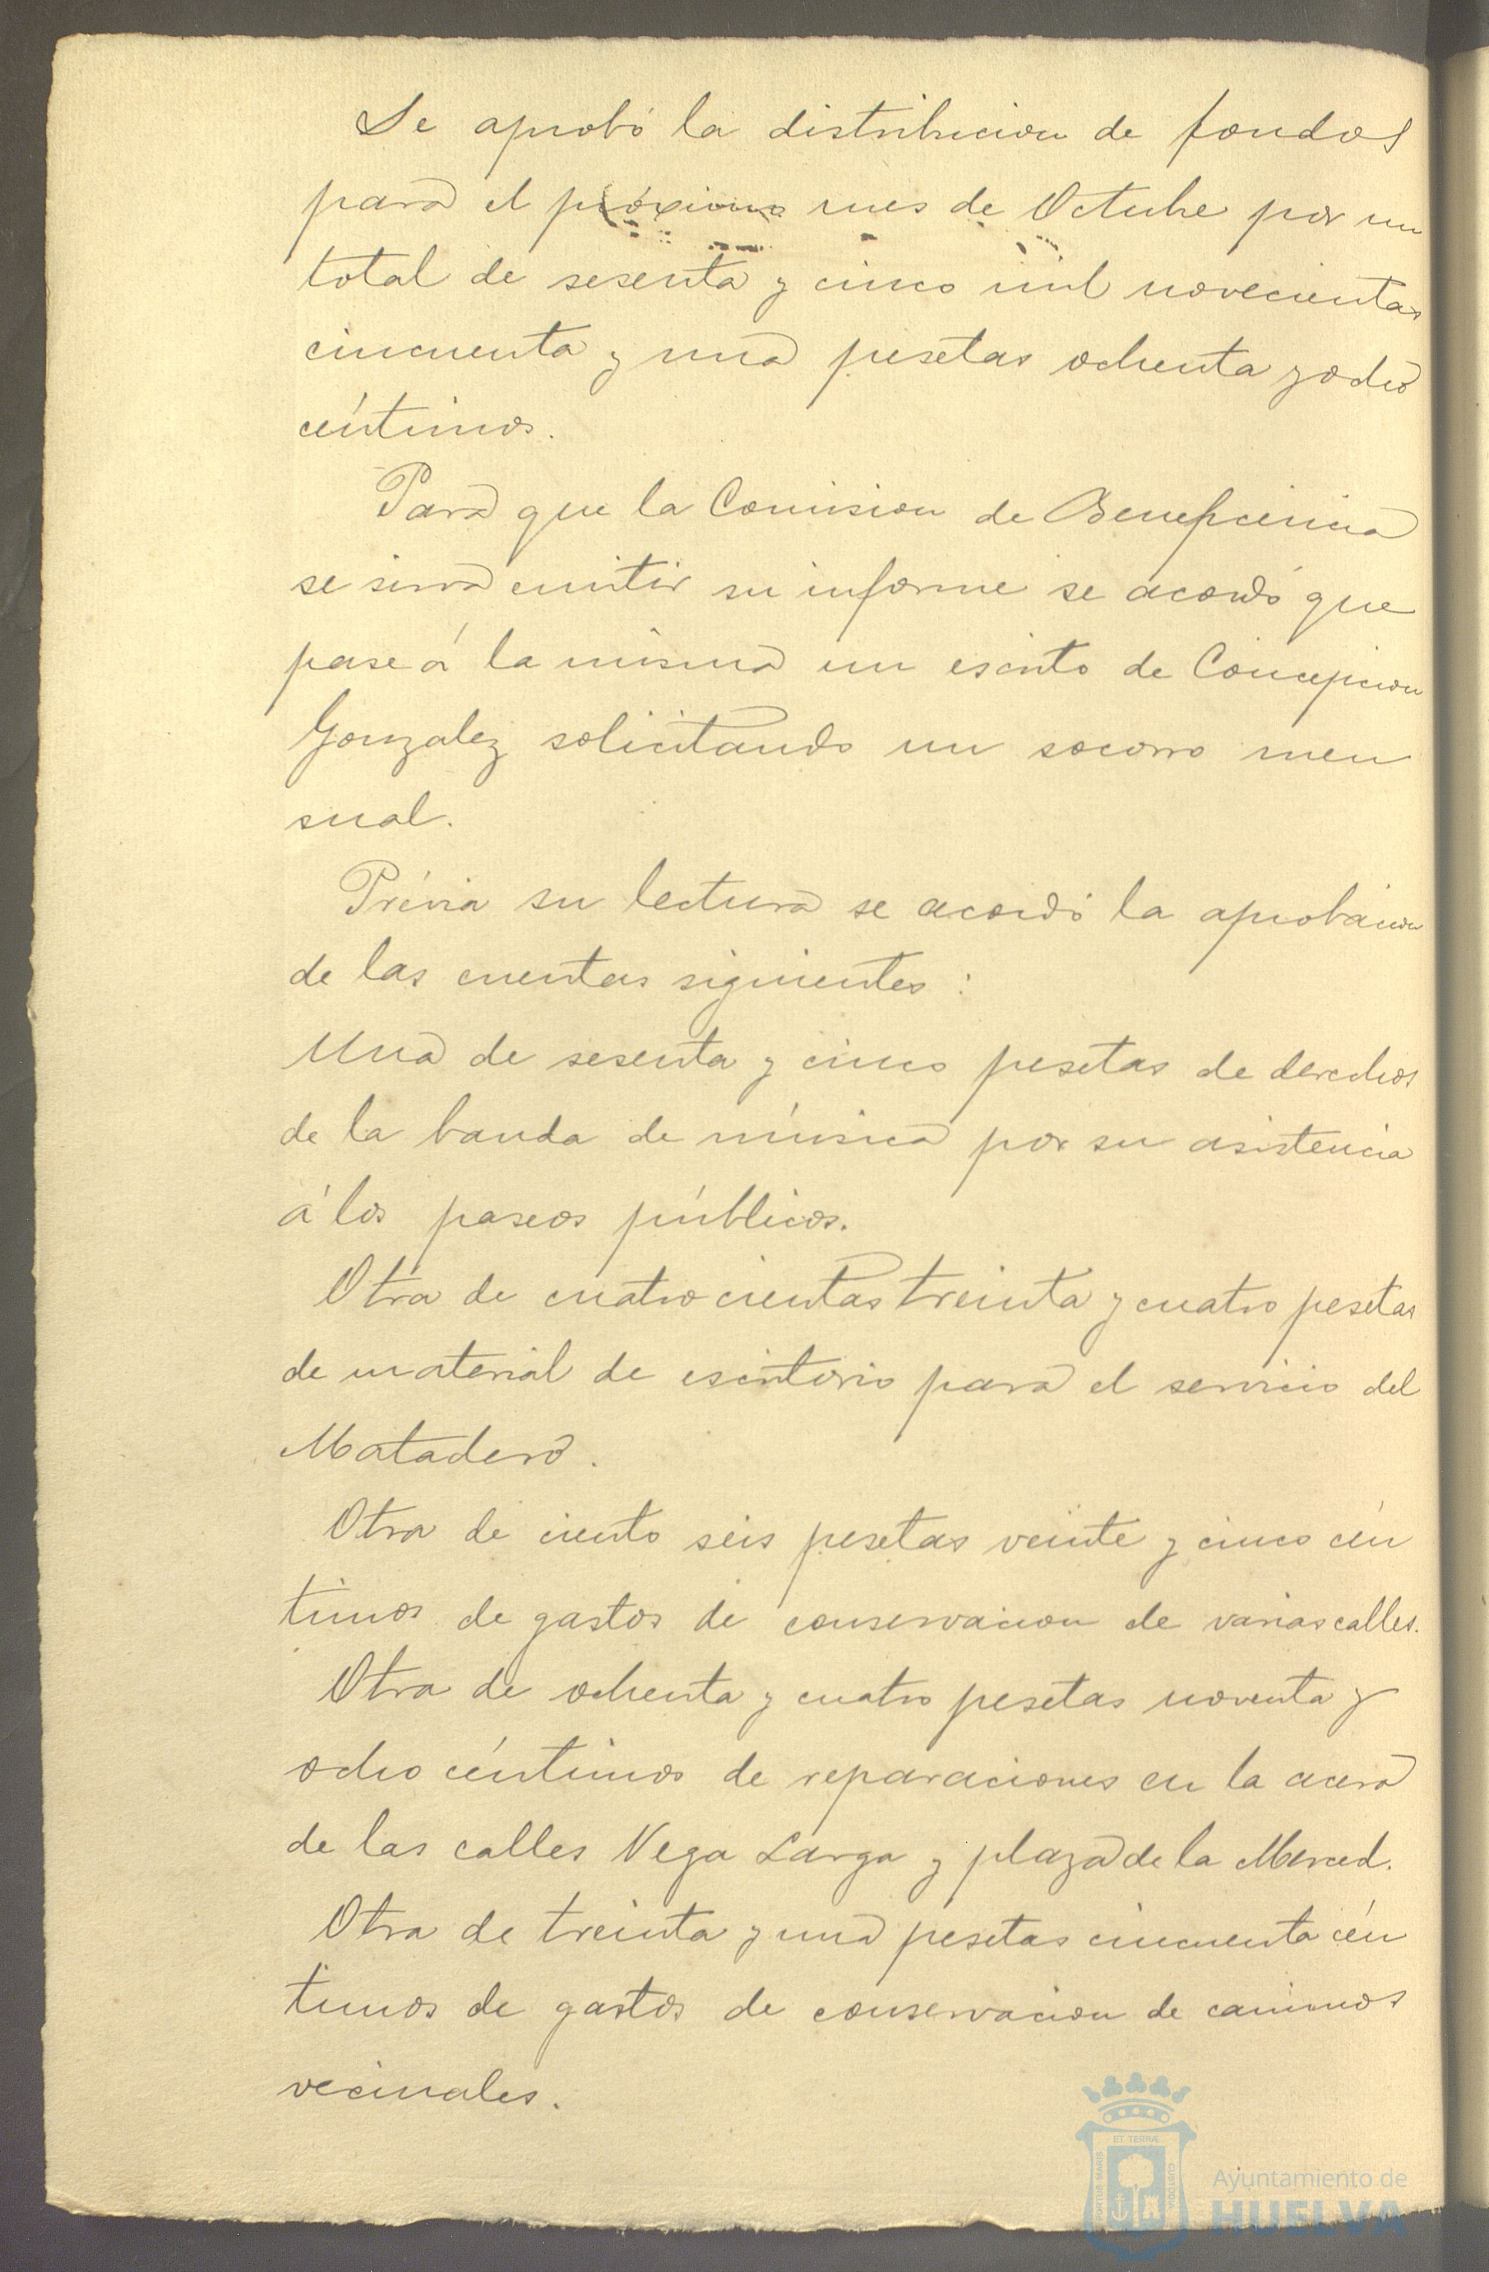 Se aprobó la distribucion de fondos
para el próximo mes de Octubre por un
total de sesenta y cinco mil novecientas
cincuenta y una pesetas ochenta y ocho
céntimos.
Para que la Comision de Beneficencia
se sirva emitir su informe se acordó que
pase á la misma un escrito de Concepcion
Gonzalez solicitando un socorro men
sual.
Prévia su lectura se acordó la aprobacion
de las cuentas siguientes:
Una de sesenta y cinco pesetas de derechos
de la banda de música por su asistencia
á los paseos públicos.
Otra de cuatrocientas treinta y cuatro pesetas
de material de escritorio para el servicio del
Matadero.
Otra de ciento seis pesetas veinte y cinco cén
timos de gastos de conservacion de varias calles.
Otra de ochenta y cuatro pesetas noventa y
ocho céntimos de reparaciones en la acera
de las calles Vega Larga y plaza de la Merced.
Otra de treinta y una pesetas cincuenta cén
timos de gastos de conservacion de caminos
vecinales.
PORTUS MARIS ET TERRAE CUSTODIA
Ayuntamiento de
HUELVA